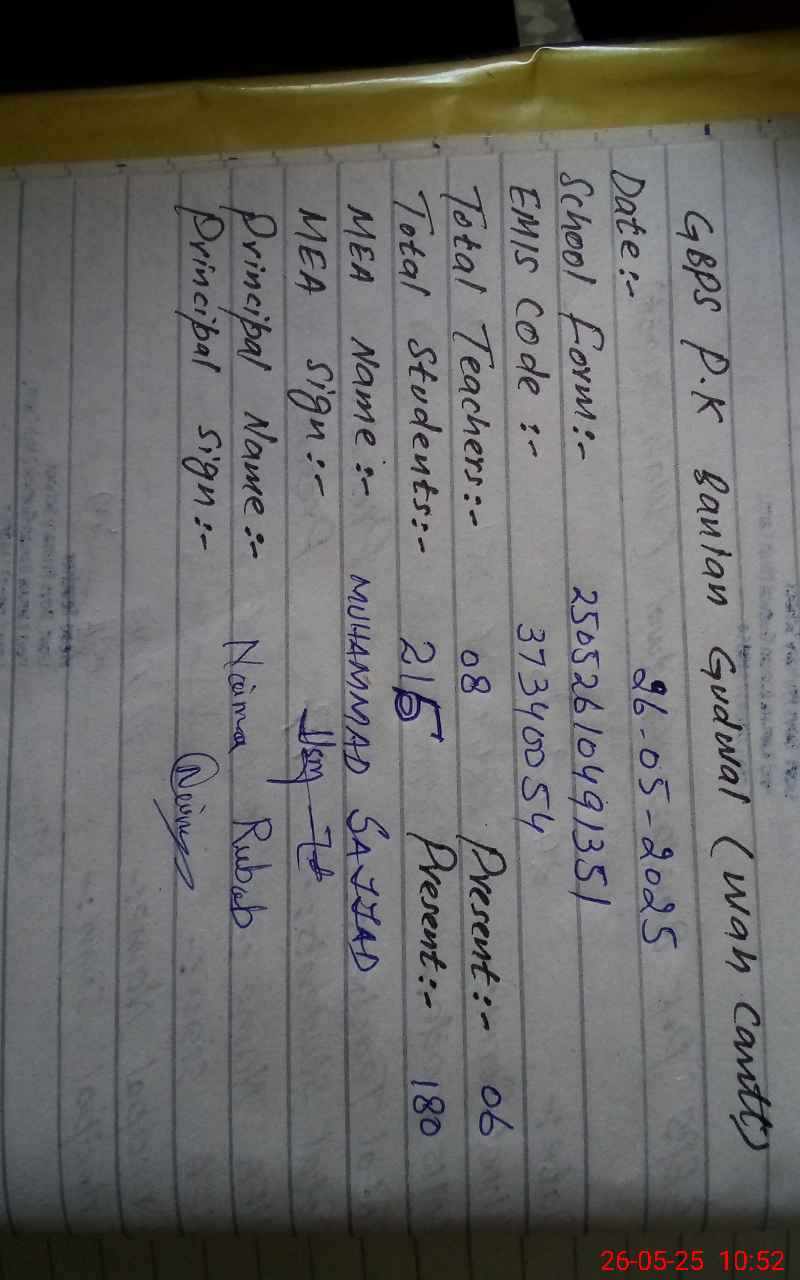 GBPS P.K Banian Gudwal (Wah Cantt)
Date:- 26-05-2025
School Form:- 25052610491351
EMIS Code :- 37340054
Total Teachers:- 08 Present:- 06
Total Students:- 215 Present:- 180
MEA Name:- MUHAMMAD SAJJAD
MEA Sign:-
Principal Name:- Naima Rubab
Principal Sign:- Naima
26-05-25 10:52